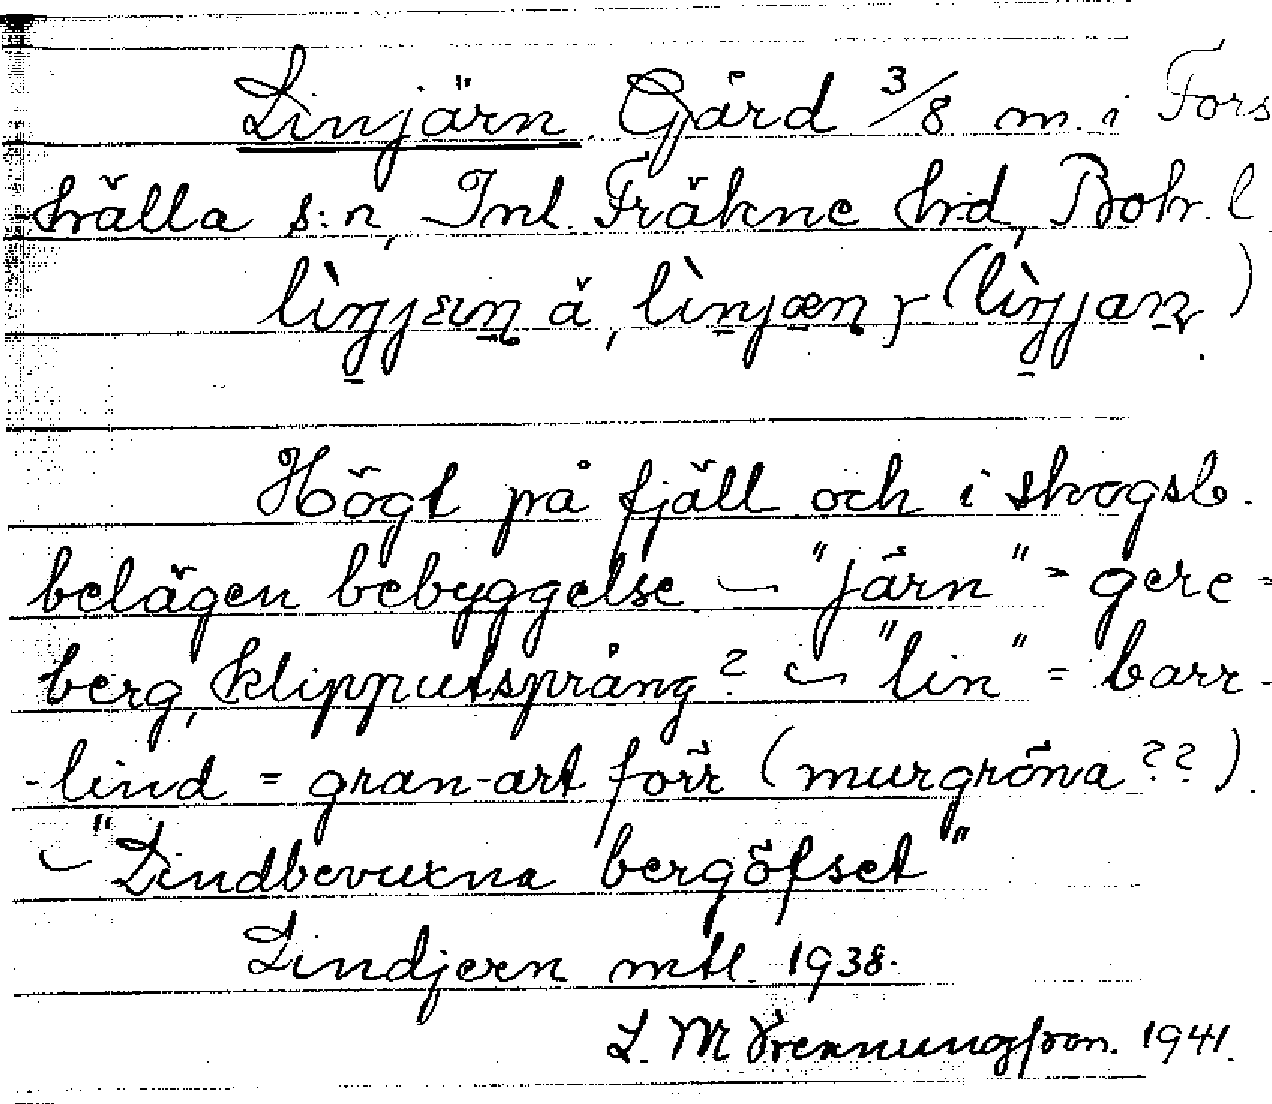 Linjärn. Gård 3/8 m. i Fors
hälla s:n, Inl. Fräkne hrd, Boh. l
Högt på fjäll och i skogsb.
belägen bebyggelse – "järn" = gere =
berg, klipputsprång? – "lin" = barr-
-lind = gran-art förr (murgröna??).
– "Lindbevuxna bergöfset"
Lindjern mtl. 1938.
L. M Vrennungfson. 1941.